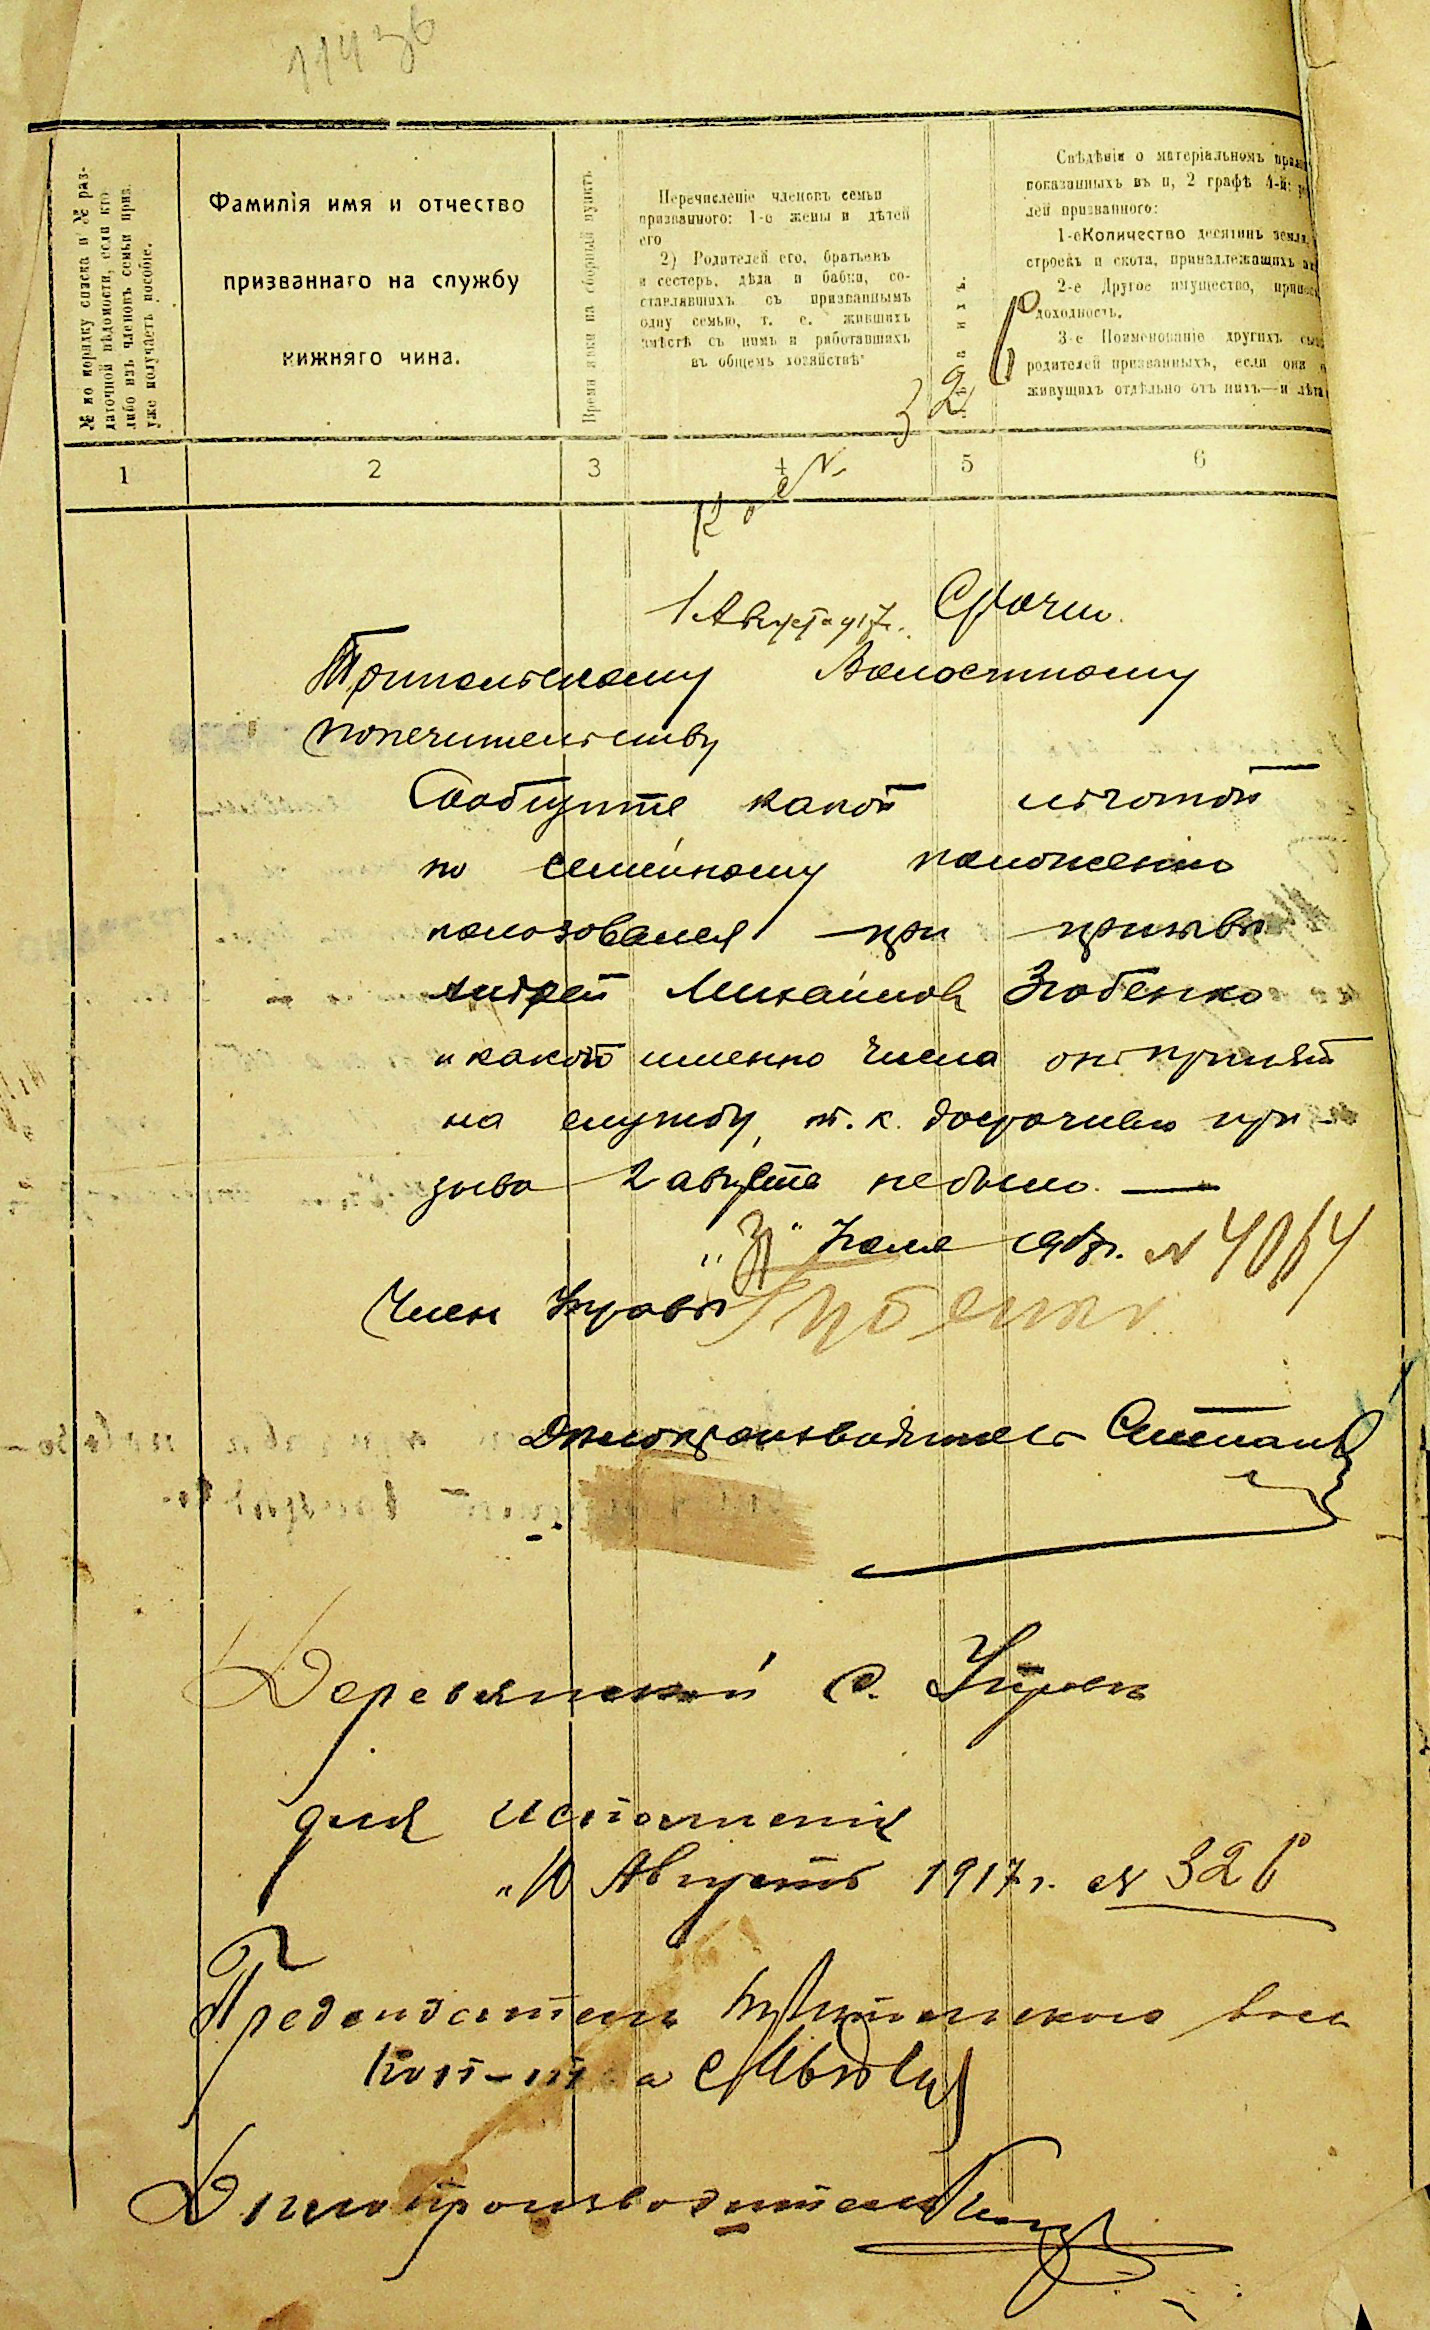 № по порядку списка и № раз-
даточной вѣдомости, если кто
либо изъ членовъ семьи приз.
уже получаетъ пособіе.
Фамилія имя и отчество
призваннаго на службу
нижняго чина.
Время явки на сборный пунктъ
Перечисленіе членовъ семьи
призваннаго: 1-е жены и дѣтей
его
2) Родителей его, братьевъ
и сестеръ, дѣда и бабки, со-
ставлявшихъ съ призваннымъ
одну семью, т. е. жившихъ
вмѣстѣ съ нимъ и работавшихъ
въ общемъ хозяйствѣ
Свѣдѣнія о матеріальномъ
показанныхъ въ п, 2 графѣ 4-й:
лей призваннаго:
1-е Количество десятинъ земли,
строекъ и скота, принадлежащихъ
2-е Другое имущество,
доходность.
3-е Поименованіе другихъ
родителей призванныхъ, если они
живущихъ отдѣльно отъ нихъ—и лѣта
1 2 3 4 5 6
1 Августа 917 г. Срочно
Трипольскому Волостному
попечительству
Сообщите какой льготой
по семейному положению
пользовался при призыве
Андрей Михайлов Зюбенко
и какого именно числа он принят
на службу, т. к. досрочнаго при-
зыва 2 августа не было. —
"31" Июля 1917 г. № 4064
Член Управы
Делопроизводитель
Деревянской с. Управѣ
для исполнения
"10 Августа 1917 г. № 326
Председатель Трипольского вол.
Поп-тва
Делопроизводитель